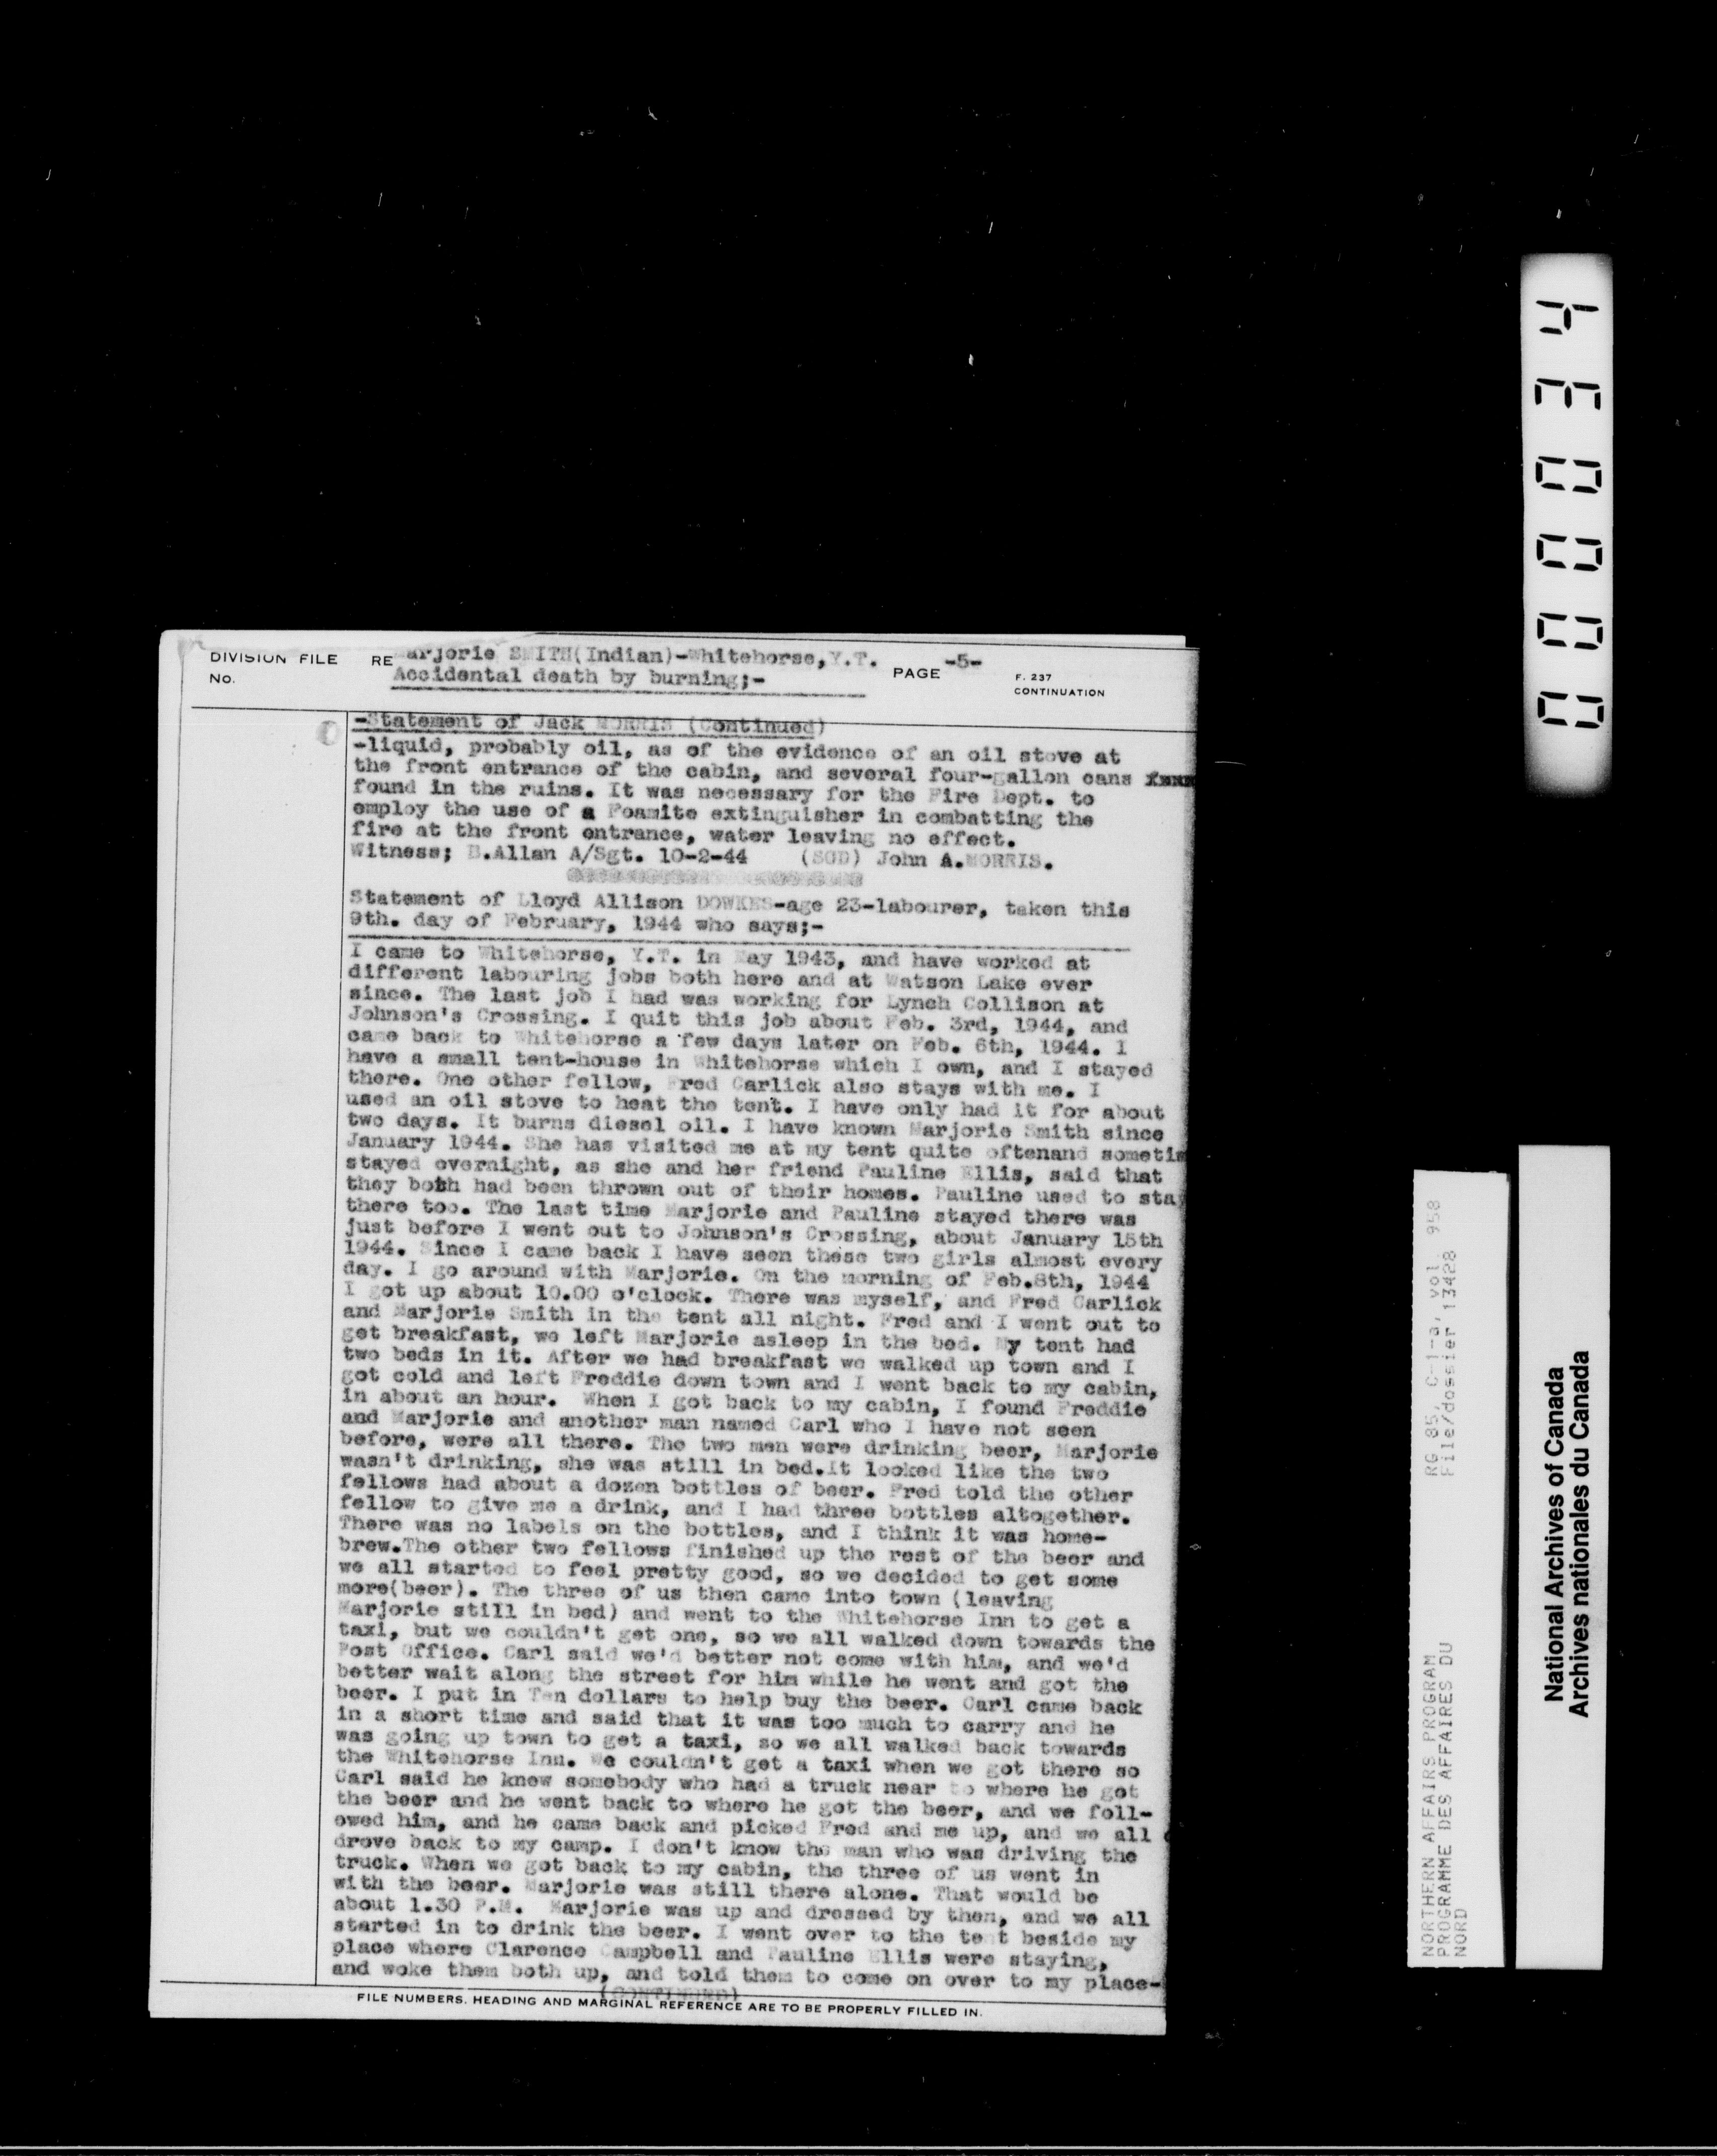 DIVISION FILE
No.
RE Marjorie SMITH(Indian)-Whitehorse,Y.T.
Accidental death by burning;-
PAGE -5-
F. 237
CONTINUATION
-Statement of Jack MORRIS (Continued)
-liquid, probably oil, as of the evidence of an oil stove at
the front entrance of the cabin, and several four-gallon cans
found in the ruins. It was necessary for the Fire Dept. to
employ the use of a Foamite extinguisher in combatting the
fire at the front entrance, water leaving no effect.
Witness; B.Allan A/Sgt. 10-2-44 (SGD) John A.MORRIS.
Statement of Lloyd Allison DOWKES-age 23-labourer, taken this
9th. day of February, 1944 who says;-
I came to Whitehorse, Y.T. in May 1943, and have worked at
different labouring jobs both here and at Watson Lake ever
since. The last job I had was working for Lynch Collison at
Johnson's Crossing. I quit this job about Feb. 3rd, 1944, and
came back to Whitehorse a few days later on Feb. 6th, 1944. I
have a small tent-house in Whitehorse which I own, and I stayed
there. One other fellow, Fred Carlick also stays with me. I
used an oil stove to heat the tent. I have only had it for about
two days. It burns diesel oil. I have known Marjorie Smith since
January 1944. She has visited me at my tent quite oftenand sometim
stayed overnight, as she and her friend Pauline Ellis, said that
they both had been thrown out of their homes. Pauline used to stay
there too. The last time Marjorie and Pauline stayed there was
just before I went out to Johnson's Crossing, about January 15th
1944. Since I came back I have seen these two girls almost every
day. I go around with Marjorie. On the morning of Feb.8th, 1944
I got up about 10.00 o'clock. There was myself, and Fred Carlick
and Marjorie Smith in the tent all night. Fred and I went out to
get breakfast, we left Marjorie asleep in the bed. My tent had
two beds in it. After we had breakfast we walked up town and I
got cold and left Freddie down town and I went back to my cabin,
in about an hour. When I got back to my cabin, I found Freddie
and Marjorie and another man named Carl who I have not seen
before, were all there. The two men were drinking beer, Marjorie
wasn't drinking, she was still in bed.It looked like the two
fellows had about a dozen bottles of beer. Fred told the other
fellow to give me a drink, and I had three bottles altogether.
There was no labels on the bottles, and I think it was home-
brew.The other two fellows finished up the rest of the beer and
we all started to feel pretty good, so we decided to get some
more(beer). The three of us then came into town (leaving
Marjorie still in bed) and went to the Whitehorse Inn to get a
taxi, but we couldn't get one, so we all walked down towards the
Post Office. Carl said we'd better not come with him, and we'd
better wait along the street for him while he went and got the
beer. I put in Ten dollars to help buy the beer. Carl came back
in a short time and said that it was too much to carry and he
was going up town to get a taxi, so we all walked back towards
the Whitehorse Inn. We couldn't get a taxi when we got there so
Carl said he knew somebody who had a truck near to where he got
the beer and he went back to where he got the beer, and we foll-
owed him, and he came back and picked Fred and me up, and we all
drove back to my camp. I don't know the man who was driving the
truck. When we got back to my cabin, the three of us went in
with the beer. Marjorie was still there alone. That would be
about 1.30 P.M. Marjorie was up and dressed by then, and we all
started in to drink the beer. I went over to the tent beside my
place where Clarence Campbell and Pauline Ellis were staying,
and woke them both up, and told them to come on over to my place-
(CONTINUED)
FILE NUMBERS. HEADING AND MARGINAL REFERENCE ARE TO BE PROPERLY FILLED IN.
000034
NORTHERN AFFAIRS PROGRAM
PROGRAMME DES AFFAIRES DU
NORD
RG 85, C-1-a, vol. 958
File/dossier 13428
National Archives of Canada
Archives nationales du Canada